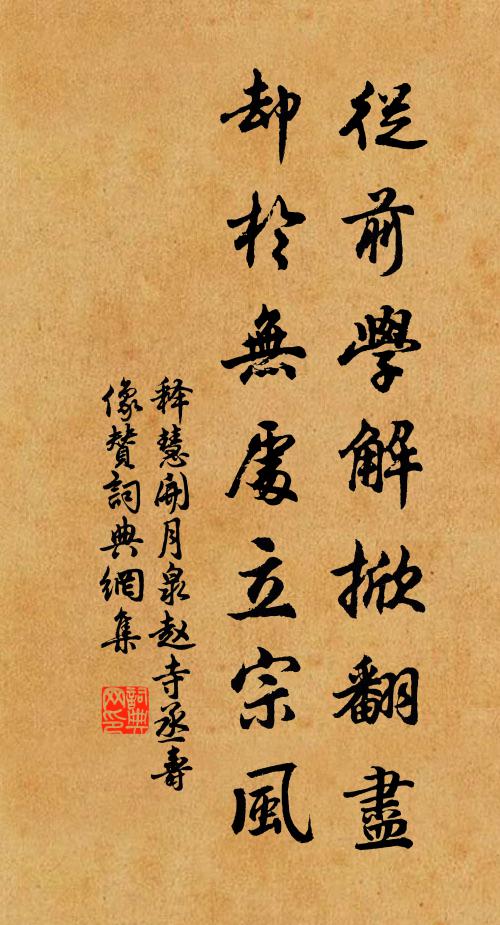 從前學解掀翻盡
却於無處立宗風
释慧開月泉赵寺丞壽
像赞詞典網集
詞典
网印